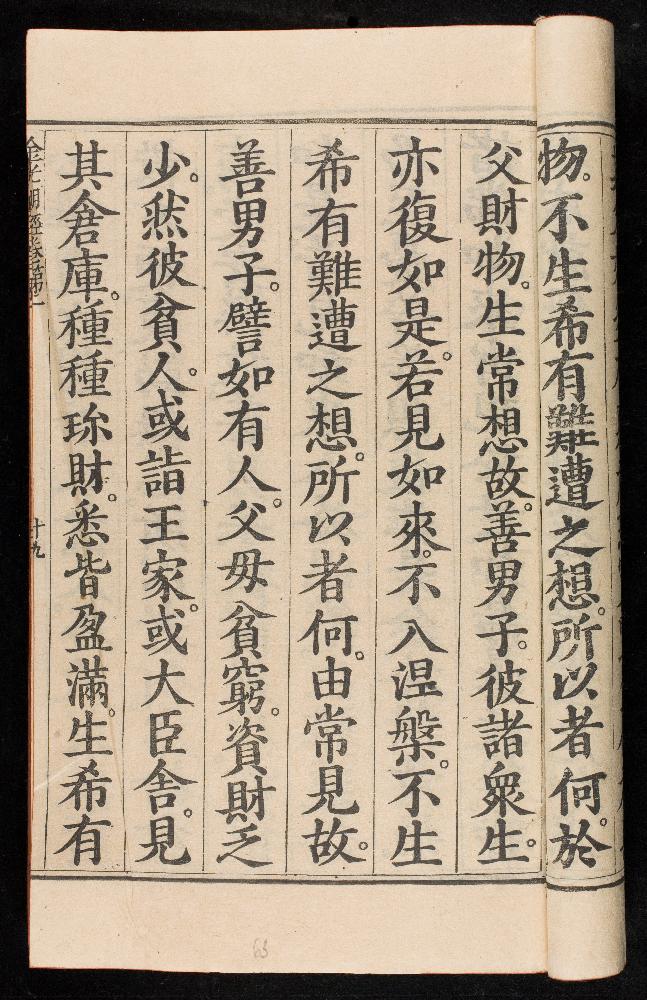 物。不生希有難遭之想。所以者何。於
父財物。生常想故。善男子。彼諸衆生。
亦復如是。若見如來。不入涅槃。不生
希有難遭之想。所以者何。由常見故。
善男子。譬如有人。父母貧窮。資財乏
少。然彼貧人。或詣王家。或大臣舍。見
其倉庫。種種珎財。悉皆盈滿。生希有
金光明經卷第一
十九
63